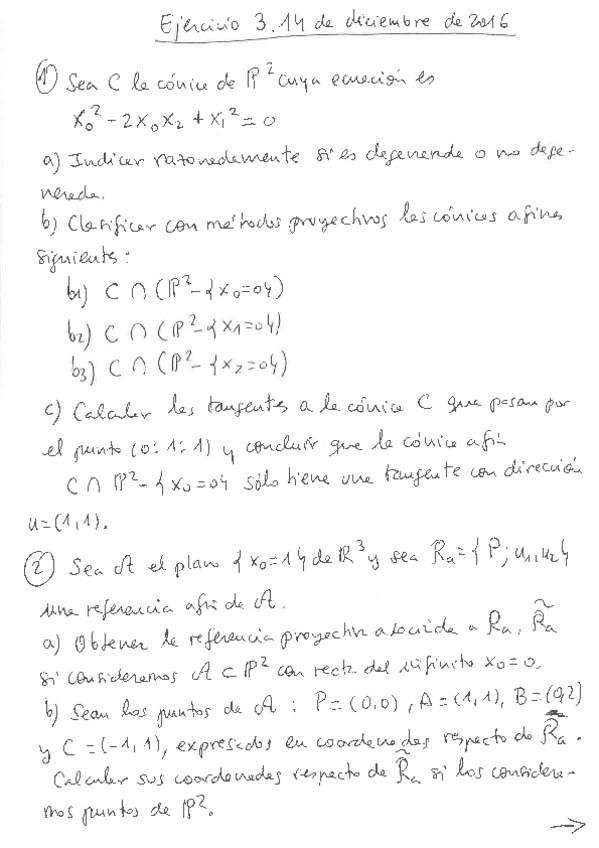 Ejercicio 3. 14 de diciembre de 2016
① Sea C la cónica de ℙ² cuya ecuación es
x₀² - 2x₀x₂ + x₁² = 0
a) Indicar razonadamente si es degenerada o no dege-
nerada.
b) Clasificar con métodos proyectivos las cónicas afines
siguientes:
b1) C ∩ (ℙ² - {x₀=0})
b2) C ∩ (ℙ² - {x₁=0})
b3) C ∩ (ℙ² - {x₂=0})
c) Calcular las tangentes a la cónica C que pasan por
el punto (0:1:1) y concluir que la cónica afín
C ∩ ℙ² - {x₀=0} sólo tiene una tangente con dirección
u=(1,1).
② Sea 𝒜 el plano {x₀=1} de ℝ³ y sea Ra = {P; u₁, u₂}
una referencia afín de 𝒜.
a) Obtener la referencia proyectiva asociada a Ra, R̃a
si consideramos 𝒜 ⊂ ℙ² con recta del infinito x₀=0.
b) Sean los puntos de 𝒜 : P=(0,0), A=(1,1), B=(0,2)
y C=(-1,1), expresados en coordenadas respecto de Ra.
Calcular sus coordenadas respecto de R̃a si los considera-
mos puntos de ℙ².
→